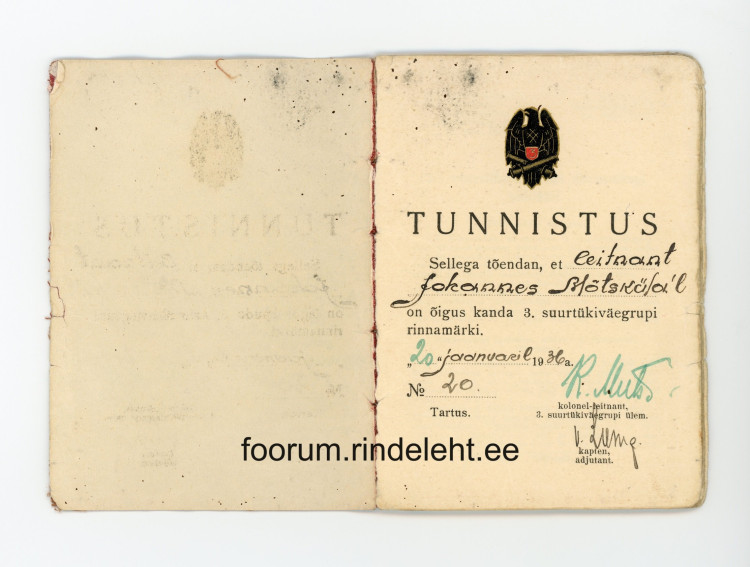 TUNNISTUS
Sellega tõendan, et leitnant
Johannes Mötsküla'l
on õigus kanda 3. suurtükiväegrupi
rinnamärki.
"20" jaanuaril 1936a.
№ 20.
Tartus.
kolonel-leitnant,
3. suurtükiväegrupi ülem.
kapten,
adjutant.
foorum.rindeleht.ee